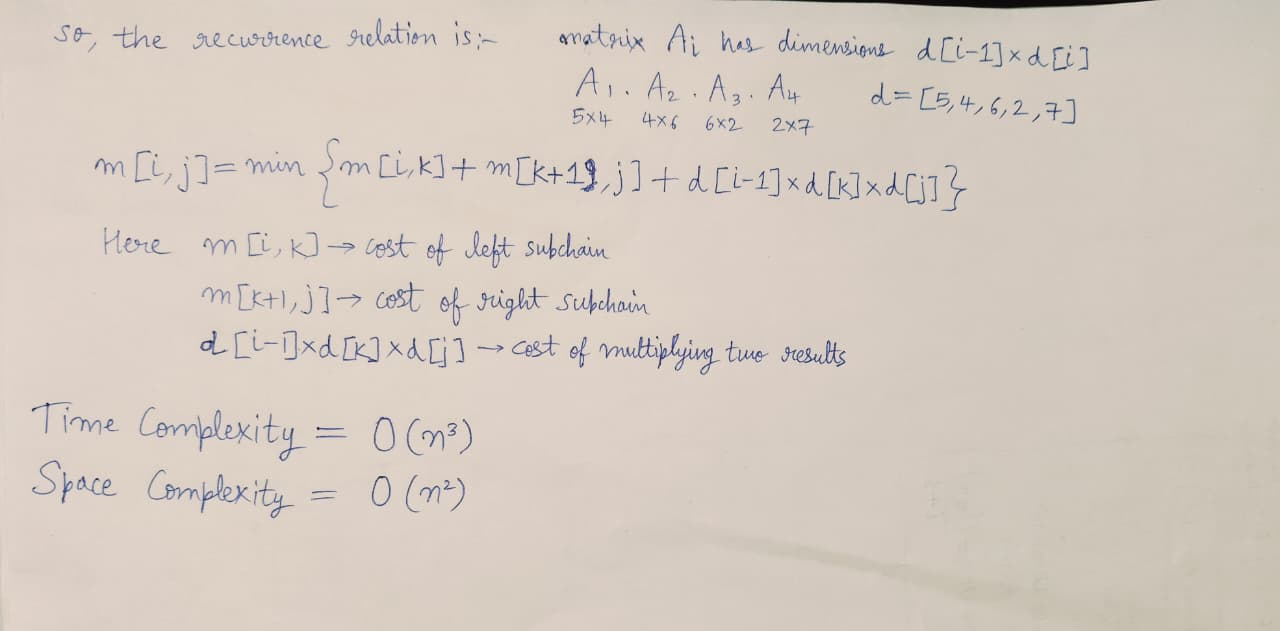 so, the recurrence relation is:-
matrix Ai has dimensions d[i-1]×d[i]
A1 . A2 . A3 . A4
d=[5,4,6,2,7]
5×4 4×6 6×2 2×7
m[i,j]= min {m[i,k]+ m[k+1,j]+d[i-1]×d[k]×d[j]}
Here m[i,k]→ cost of left subchain
m[k+1,j]→ cost of right subchain
d[i-1]×d[k]×d[j] → cost of multiplying two results
Time Complexity = O(n³)
Space Complexity = O(n²)